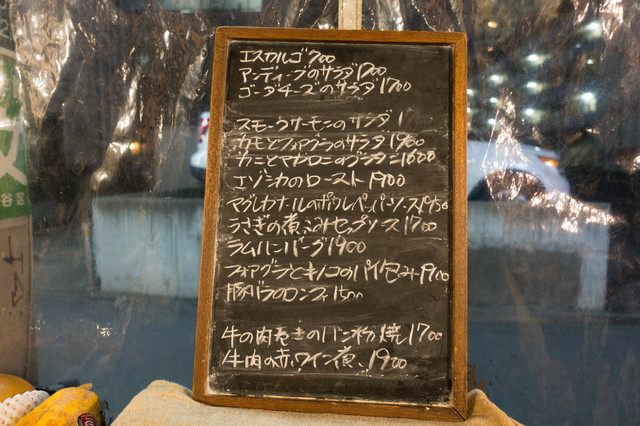 エスカルゴ700
アンディーブのサラダ1200
ゴーダチーズのサラダ1700
スモークサーモンのサンダ1
カモとフォアグラのサラダ1900
カニとマカロニのグラタン1600
エゾシカのロースト1900
マグレカナールのポワレペーパーソース
うさぎの煮こみセップソース1700
ラムハンバーグ1900
フォアグラとキノコのパイ包み1900
豚バラのコンフィ1500
牛の肉巻きのパン粉焼1700
牛肉の赤ワイン煮、1900
谷区